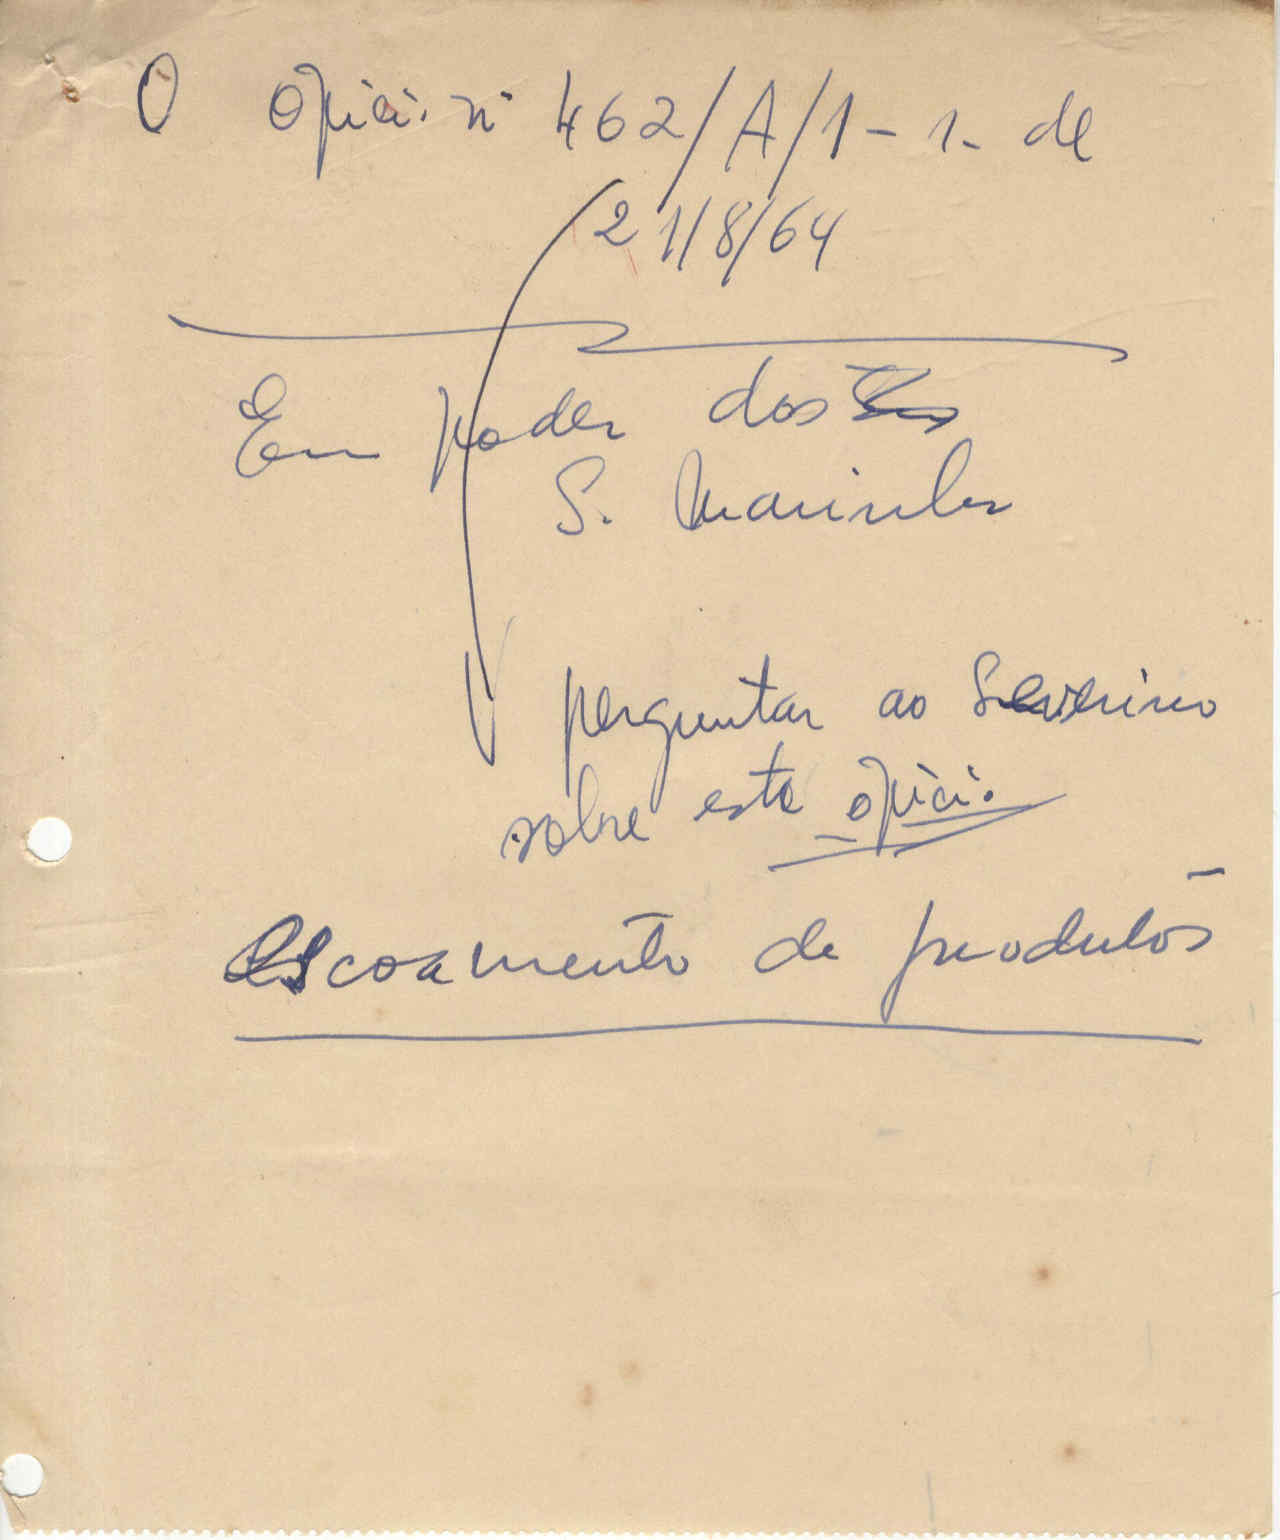 O ofício nº 462/A/1-1- de
21/8/64
Em poder dos
S. Marinho
perguntar ao Severino
sobre este ofício.
Escoamento de produtos